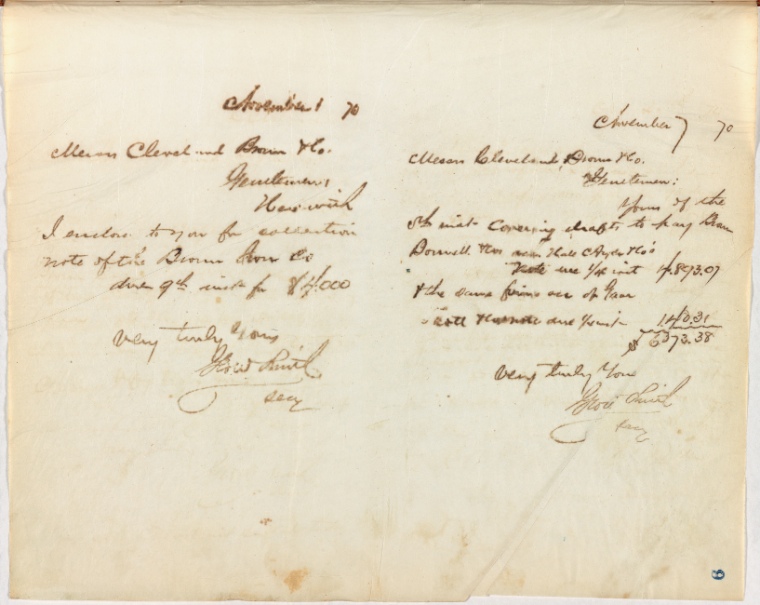 November 1 70
Messrs Cleveland Brown & Co.
Gentlemen;
Herewith
I enclose to you for collection
note of the Brown Iron Co
due 9th inst for $4,000
Very truly Yours
Secy
November 7 70
Messrs Cleveland, Brown & Co.
Gentlemen;
Yours of the
5th inst covering drafts to pay
Bonnell
note inst 4,893.07
& the same firms
due inst 1,480.31
$ 6373.38
Very truly Yours
Secy
6